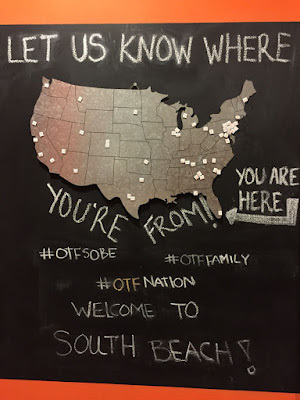 LET US KNOW WHERE
YOU'RE FROM!
YOU ARE
HERE
#OTFSOBE
#OTFFAMILY
#OTFNATION
WELCOME TO
SOUTH BEACH!